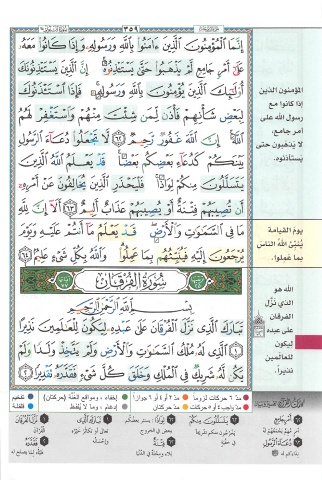 ٣٥٩
إِنَّمَا ٱلْمُؤْمِنُونَ ٱلَّذِينَ ءَامَنُوا۟ بِٱللَّهِ وَرَسُولِهِۦ وَإِذَا كَانُوا۟ مَعَهُۥ
عَلَىٰٓ أَمْرٍ جَامِعٍ لَّمْ يَذْهَبُوا۟ حَتَّىٰ يَسْتَـْٔذِنُوهُ إِنَّ ٱلَّذِينَ يَسْتَـْٔذِنُونَكَ
أُو۟لَٰٓئِكَ ٱلَّذِينَ يُؤْمِنُونَ بِٱللَّهِ وَرَسُولِهِۦ فَإِذَا ٱسْتَـْٔذَنُوكَ
لِبَعْضِ شَأْنِهِمْ فَأْذَن لِّمَن شِئْتَ مِنْهُمْ وَٱسْتَغْفِرْ لَهُمُ
ٱللَّهَ إِنَّ ٱللَّهَ غَفُورٌ رَّحِيمٌ ٦٢ لَّا تَجْعَلُوا۟ دُعَآءَ ٱلرَّسُولِ
بَيْنَكُمْ كَدُعَآءِ بَعْضِكُم بَعْضًا قَدْ يَعْلَمُ ٱللَّهُ ٱلَّذِينَ
يَتَسَلَّلُونَ مِنكُمْ لِوَاذًا فَلْيَحْذَرِ ٱلَّذِينَ يُخَالِفُونَ عَنْ أَمْرِهِۦٓ
أَن تُصِيبَهُمْ فِتْنَةٌ أَوْ يُصِيبَهُمْ عَذَابٌ أَلِيمٌ ٦٣ أَلَآ إِنَّ لِلَّهِ
مَا فِى ٱلسَّمَٰوَٰتِ وَٱلْأَرْضِ قَدْ يَعْلَمُ مَآ أَنتُمْ عَلَيْهِ وَيَوْمَ
يُرْجَعُونَ إِلَيْهِ فَيُنَبِّئُهُم بِمَا عَمِلُوا۟ وَٱللَّهُ بِكُلِّ شَىْءٍ عَلِيمٌ ٦٤
سُورَةُ الْفُرْقَانِ
بِسْمِ ٱللَّهِ ٱلرَّحْمَٰنِ ٱلرَّحِيمِ
تَبَارَكَ ٱلَّذِى نَزَّلَ ٱلْفُرْقَانَ عَلَىٰ عَبْدِهِۦ لِيَكُونَ لِلْعَٰلَمِينَ نَذِيرًا
١ ٱلَّذِى لَهُۥ مُلْكُ ٱلسَّمَٰوَٰتِ وَٱلْأَرْضِ وَلَمْ يَتَّخِذْ وَلَدًا وَلَمْ
يَكُن لَّهُۥ شَرِيكٌ فِى ٱلْمُلْكِ وَخَلَقَ كُلَّ شَىْءٍ فَقَدَّرَهُۥ تَقْدِيرًا ٢
المؤمنون الذين
إذا كانوا مع
رسول الله على
أمر جامع،
لا يذهبون حتى
يستأذنوه.
يومَ القيامة
يُنَبِّئُ اللهُ الناسَ
بما عَمِلوا.
الله هو
الذي نَزَّل
الفرقان
على عبده
ليكون
للعالمين
نذيراً.
مدّ ٦ حركات لزوماً
مدّ ٢ أو ٤ أو ٦ جوازاً
إخفاء، ومواقع الغُنَّة (حركتان)
تفخيم
مدّ حركتان
إدغام، وما لا يُلفظ
قلقلة